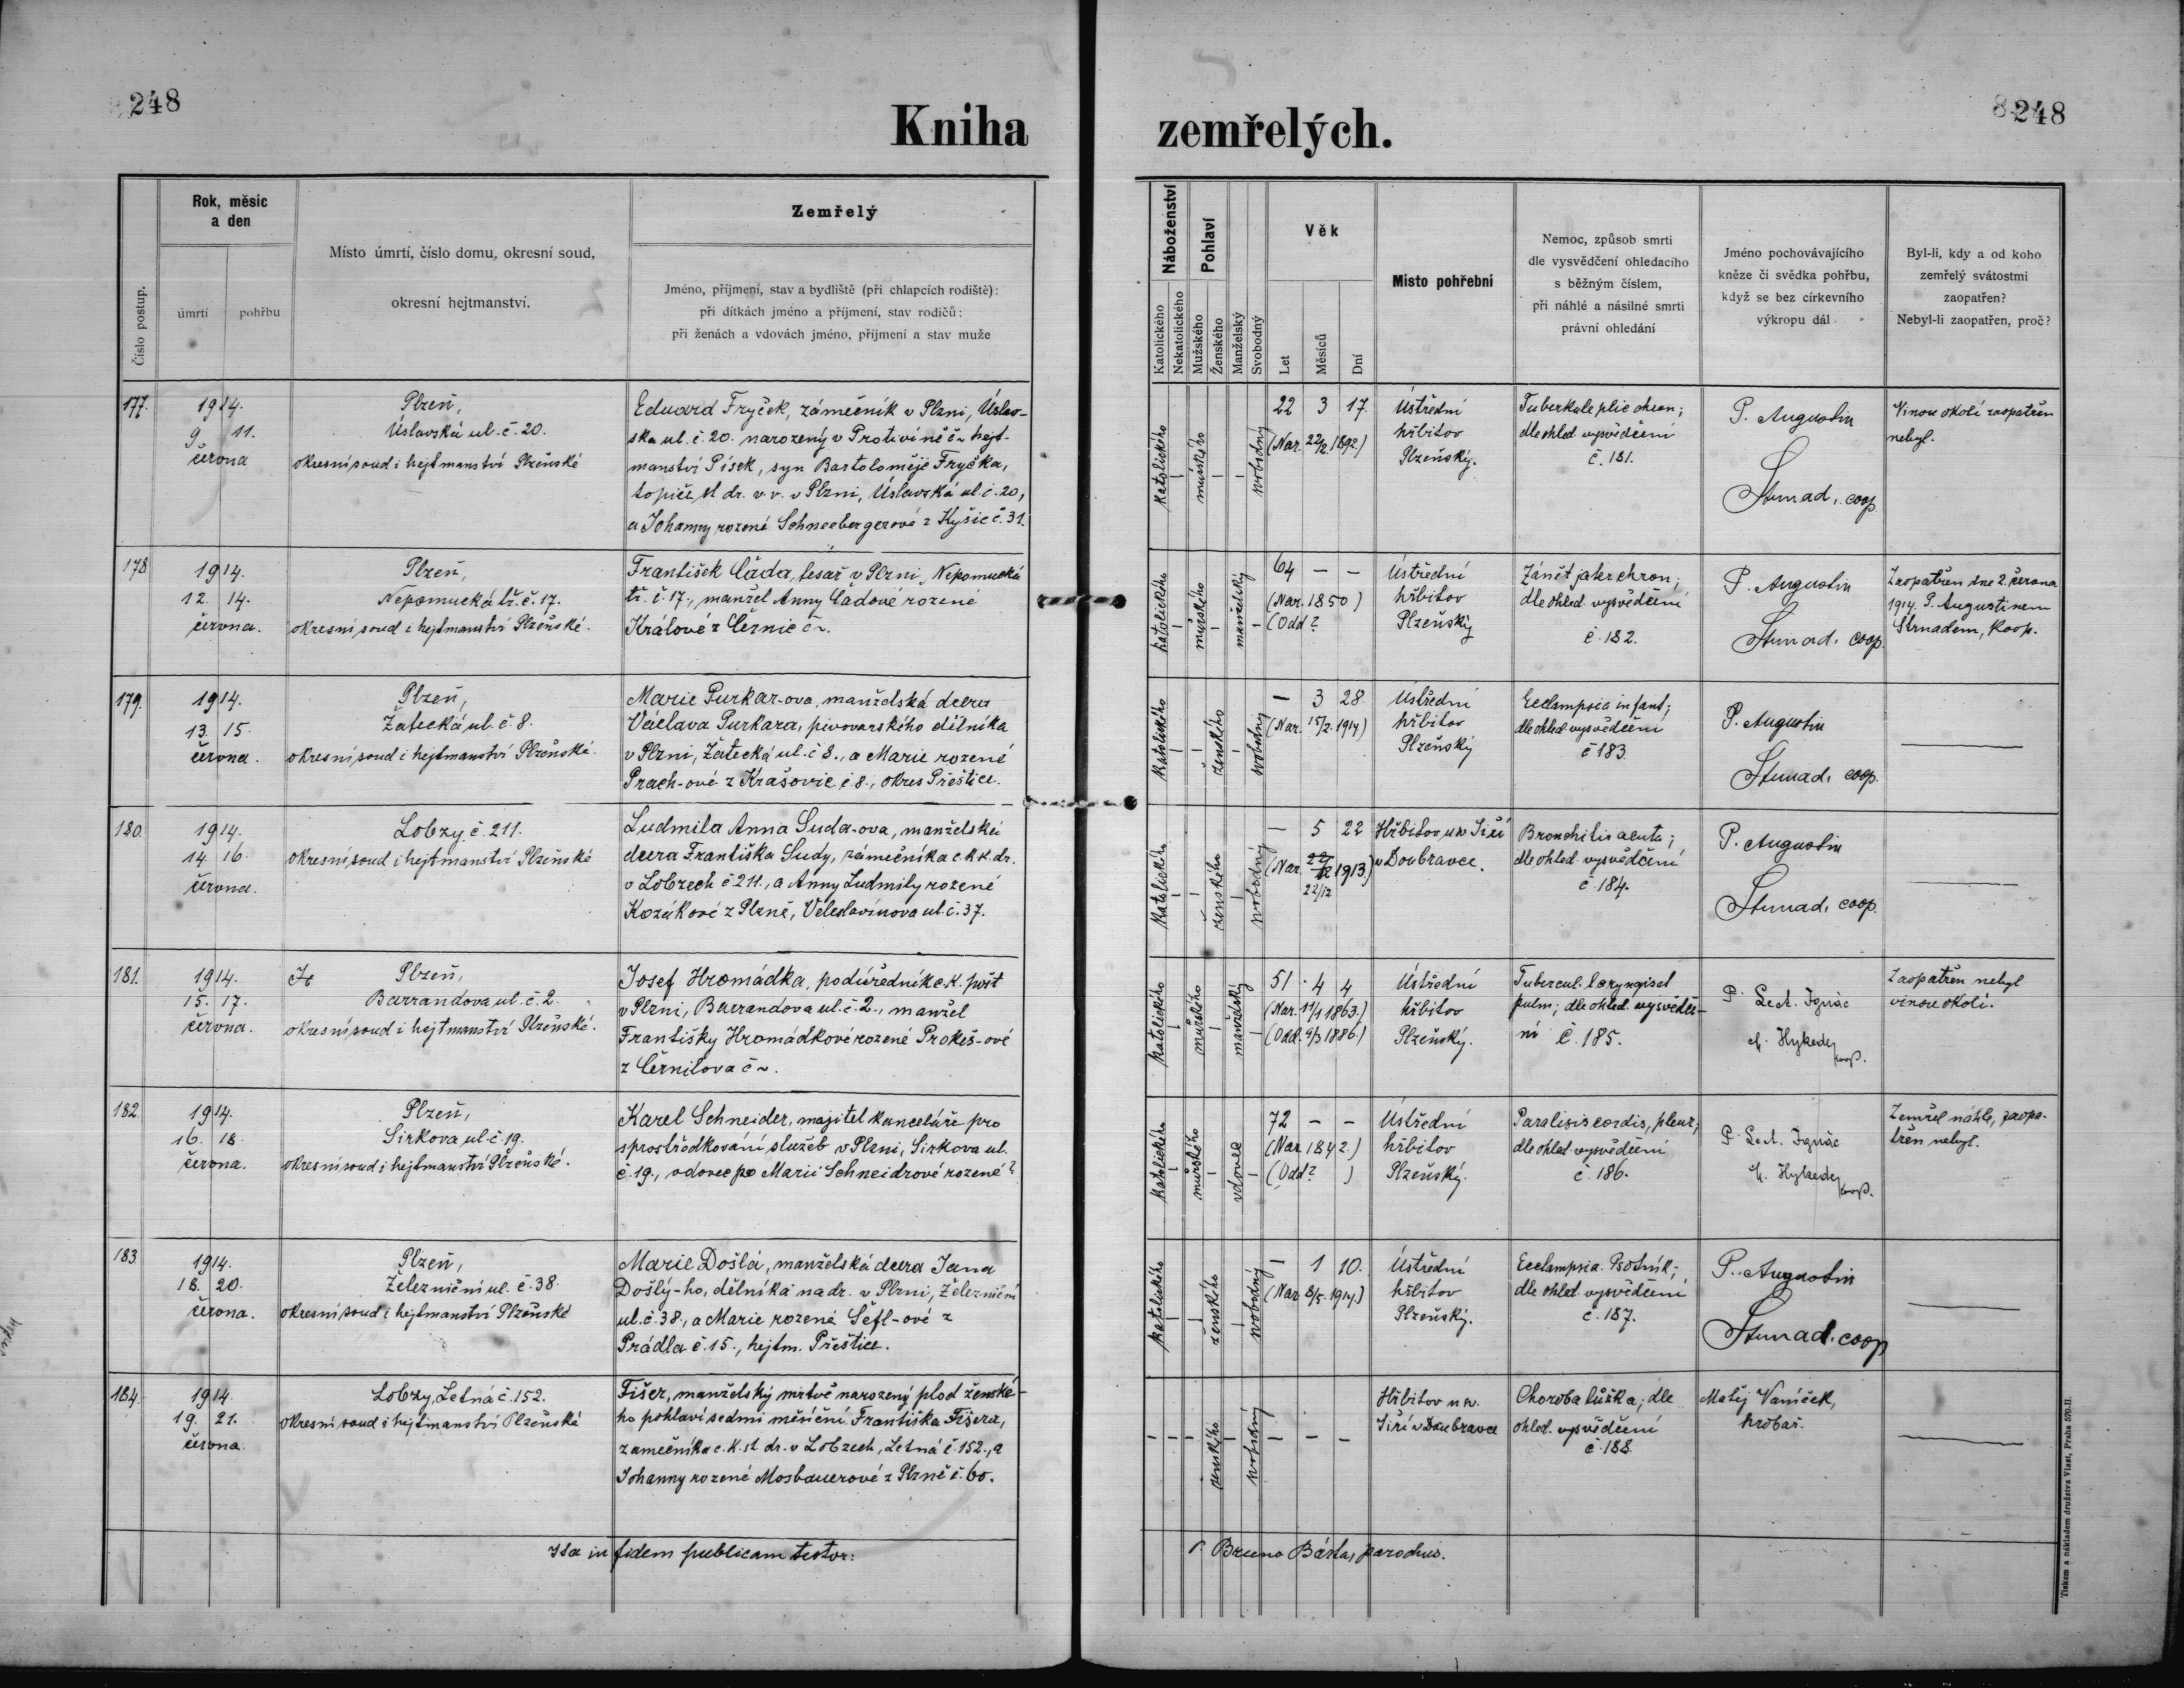 248
Kniha zemřelých.
248
Číslo postup.
Rok, měsíc
a den
úmrtí
pohřbu
Místo úmrtí, číslo domu, okresní soud,
okresní hejtmanství.
Zemřelý
Jméno, příjmení, stav a bydliště (při chlapcích rodiště):
při dítkách jméno a příjmení, stav rodičů:
při ženách a vdovách jméno, příjmení a stav muže
Náboženství
Katolického
Nekatolického
Pohlaví
Mužského
Ženského
Manželský
Svobodný
Věk
Let
Měsíců
Dní
Místo pohřební
Nemoc, způsob smrti
dle vysvědčení ohledacího
s běžným číslem,
při náhlé a násilné smrti
právní ohledání
Jméno pochovávajícího
kněze či svědka pohřbu,
když se bez církevního
výkropu dál
Byl-li, kdy a od koho
zemřelý svátostmi
zaopatřen?
Nebyl-li zaopatřen, proč?
177.
1914.
9 11.
června
Plzeň,
Úslavská ul. č. 20.
okresní soud i hejtmanství Plzeňské
Eduard Fryček, zámečník v Plzni, Úslav-
ska ul. č. 20. narozený v Protivíně č ~ hejt-
manství Písek, syn Bartoloměje Fryčka,
topiče st dr. v. v. v Plzni, Úslavská ul. č. 20,
a Johanny rozené Schneebergerové z Kyšic č. 31.
katolického
mužského
svobodný
22 3 17
(Nar. 22/2 1892)
Ústřední
hřbitov
Plzeňský.
Tuberkule plic chron;
dle ohled vysvědčení
č. 181.
P. Augustin
Strnad, coop
Vinou okolí zaopatřen
nebyl.
178
1914.
12. 14.
června.
Plzeň,
Nepomucká tř. č. 17.
okresní soud i hejtmanství Plzeňské.
František Čáda, tesař v Plzni, Nepomucká
tř. č. 17., manžel Anny Čadové rozené
Králové z Černic č ~.
katolického
mužského
manželský
64 — —
(Nar. 1850)
(Odd ?
Ústřední
hřbitov
Plzeňský
Zánět jater chron;
dle ohled vysvědčení
č. 182.
P. Augustin
Strnad. coop.
Zaopatřen dne 2. června
1914 P. Augustinem
Strnadem, Koop.
179.
1914.
13. 15.
června.
Plzeň,
Žatecká ul. č. 8.
okresní soud i hejtmanství Plzeňské.
Marie Purkar-ova, manželská dcera
Václava Purkara, pivovarského dělníka
v Plzni, Žatecká ul. č 8., a Marie rozené
Prach-ové z Krašovic č. 8., okres Přeštice.
katolického
ženského
svobodný
— 3 28
(Nar. 15/2. 1914)
Ústřední
hřbitov
Plzeňský
Ecclampsia infant;
dle ohled vysvědčení
č 183.
P. Augustin
Strnad, coop.
180.
1914.
14. 16.
června.
Lobzy č. 211.
okresní soud i hejtmanství Plzeňské
Ludmila Anna Suda-ova, manželská
dcera Františka Sudy, zámečníka c. k k. dr.
v Lobzech č 211., a Anny Ludmily rozené
Kozákové z Plzně, Veleslavínova ul. č. 37.
katolického
ženského
svobodný
— 5 22
(Nar. 22/12 1913)
22/12
Hřbitov u sv Jiří
v Doubravce.
Bronchitis acuta;
dle ohled vysvědčení
č 184.
P. Augustin
Strnad, coop.
181.
1914.
15. 17.
června.
Plzeň,
Barrandova ul. č. 2.
okresní soud i hejtmanství Plzeňské.
Josef Hromádka, podúředník c. k. pošt
v Plzni, Barrandova ul. č. 2., manžel
Františky Hromádkové rozené Prokeš-ové
z Černilova č ~.
katolického
mužského
manželský
51 4 4
(Nar. 11/1 1863.)
(Odd. 9/3 1886)
Ústřední
hřbitov
Plzeňský.
Tubercul. laryngis et
pulm; dle ohled. vysvědče-
ní č. 185.
P. Lect. Ignác
Zaopatřen nebyl
vinou okolí.
182.
1914.
16. 18.
června.
Plzeň,
Sirkova ul. č. 19.
okresní soud i hejtmanství Plzeňské.
Karel Schneider, majitel kanceláře pro
sprostředkování služeb v Plzni, Sirkova ul.
č. 19., vdovec po Marii Schneidrové rozené?
katolického
mužského
vdovec
72 — —
(Nar. 1842.)
(Odd ? )
Ústřední
hřbitov
Plzeňský.
Paralisis cordis, pleur;
dle ohled. vysvědčení
č. 186.
P. Lect. Ignác
Zemřel náhle, zaopa-
třen nebyl.
183.
1914.
18. 20.
června.
Plzeň,
Železniční ul. č. 38.
okresní soud i hejtmanství Plzeňské
Marie Došlá, manželská dcera Jana
Došlý-ho, dělníka na dr. v Plzni, Železniční
ul. č. 38., a Marie rozené Šéfl-ové z
Prádla č. 15., hejtm. Přeštice.
katolického
ženského
svobodný
— 1 10.
(Nar 8/5. 1914.)
Ústřední
hřbitov
Plzeňský.
Ecclampsia. Psotník;
dle ohled. vysvědčení
č. 187.
P. Augustin
Strnad. coop
184.
1914.
19. 21.
června.
Lobzy, Letná č 152.
okresní soud i hejtmanství Plzeňské
Fišer, manželský mrtvě narozený plod ženské-
ho pohlaví sedmi měsíční Františka Fišera,
zámečníka c. k. st dr. v Lobzech, Letná č. 152., a
Johanny rozené Mosbauerové z Plzně č. 60.
ženského
svobodný
— — —
Hřbitov u sv.
Jiří v Doubravce
Choroba lůžka; dle
ohled. vysvědčení
č. 188
Matěj Vaníček,
hrobař.
Ita in fidem publicam testor:
P. Bruno Bárta, parochus.
Tiskem a nákladem družstva Vlast, Praha 570-II.